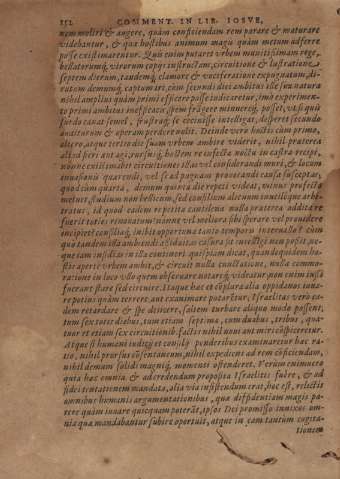 152 COMMENT. IN LIB. IOSVE,
nem moliri & augere, quàm conficiendam rem parare & maturare
videbantur, & qua hostibus animum magis quàm metum adferre
posse existimarentur. Quis enim putaret vrbem munitissimam rege,
bellatorumq́; virorum copijs instructam, circuitione & lustratione
septem dierum, tandemq́; clamore & vociferatione expugnatum, di-
rutam demumq́; captum iri, cùm secundi diei ambitus ille suu natura
nihil amplius quàm primi efficere posse videretur, imò experimen-
to primi ambitus inefficacis, spem frāgere minueréq́; posset, vt si quis
surdo canat semel, frustraq́; se cecinisse intelligat, desperet secundo
auditurum & operam perdere nolit. Deinde verò hostis cùm primo,
altero, atque tertio die suam vrbem ambire viderit, nihil praterea
alicuiperi aut agi, rursusq́; hostem re infecta noctu in castra recipi,
nonne existimaret circuitiones illas vel considerandi muri, & locum
inuasionis quarendi, vel se ad pugnam prouocandi causa susceptas,
quod cùm quarta, demum quinta die repeti videat, minus profectò
metuet, studium non bellicum, sed consilium alicuum inutile q́ue arbi-
tratus, id quod eadem repetita cantilena nulla praterea addita re
fuerit toties renouatum: sanè vel meliora sibi sperare vel prouidere
incipiet? consiliaq́; inibit opportuna tanto temporis interuallo? cùm
quo tandem illa ambiendi assiduitas casura sit intelligi non possit, ne-
que tam insidias in illa contineri, quispiam dicat, quandoquidem ho-
stis apertè vrbem ambit, & circuit nulla cunctatione, nulla commo-
ratione in loco vllo quem obseruare notaréq́; videatur, non enim iussi
fuerant stare sed circuire. Itaque hac res explora alia oppidanos iuua-
re potius quàm terrere, aut exanimare putaretur, Israelitas verò ea-
dem retardare & spe deijcere, saltem turbare aliquo modo possent,
tum sex totos diebus, tum etiam septimo, cum duabus, tribus, qua-
tuor et etiam sex circuitionib. factis nihil noui aut miri cōspiceretur.
Atque si humani iudicij et consilij ponderibus examinaretur hac ra-
tio, nihil prorsus cōsentaneum, nihil expediens ad rem cōficiendam,
nihil demum solidi magniq́; momenti ostenderet. Verùm enimuero
quia hac omnia & ad credendum proposita Israelitis fuêre, & ad
fidei tentationem mandata, alia via insistendum erat, hoc est, relictis
omnibus humanis argumentationibus, qua diffidentiam magis pa-
rere quàm iuuare quicquam poterāt, ipsos Dei promisso innixos om-
nia qua mandabantur subire oportuit, atque in eam tantùm cogita-
tionem